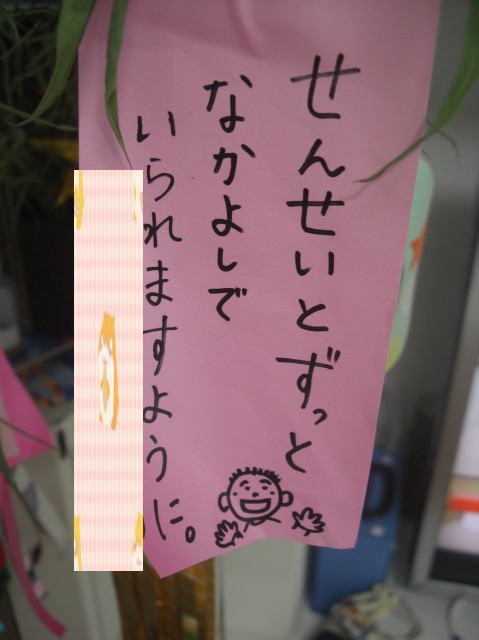 せんせいとずっと
なかよしで
いられますように。